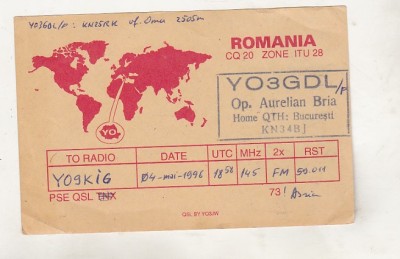 YO3GDL/P : KN25RK vf. Omu 2505m
ROMANIA
CQ 20 ZONE ITU 28
YO3GDL/P
Op. Aurelian Bria
Home QTH: București
KN34BJ
YO
TO RADIO DATE UTC MHz 2x RST
YO9KIG 04-mai-1996 18 58 145 FM 59.011
PSE QSL TNX 73!
QSL BY YO5AY